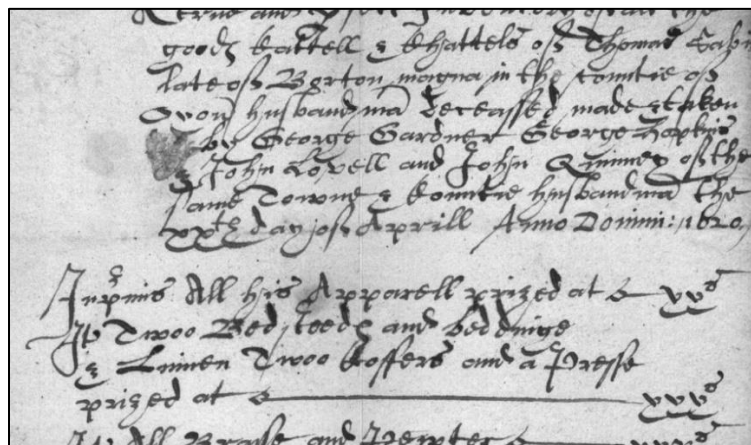 and Inventory of all the
goods Kattell & Khattels of Thomas
late of Borton magna in the countie of
Oxon husbandmā deceassed made & taken
by George Gardner George Hopkins
& John Lovell and John Quinney of the
same Towne & Kountie husbandmā the
xxth day of Aprill Anno Domini: 1620
Inpmis All his Apparell prized at xxs
It Twoo Bedsteeds and beddinge
& Linnen Twoo Koffers and a Presse
prized at xxxs
It All Brasse and Pewter